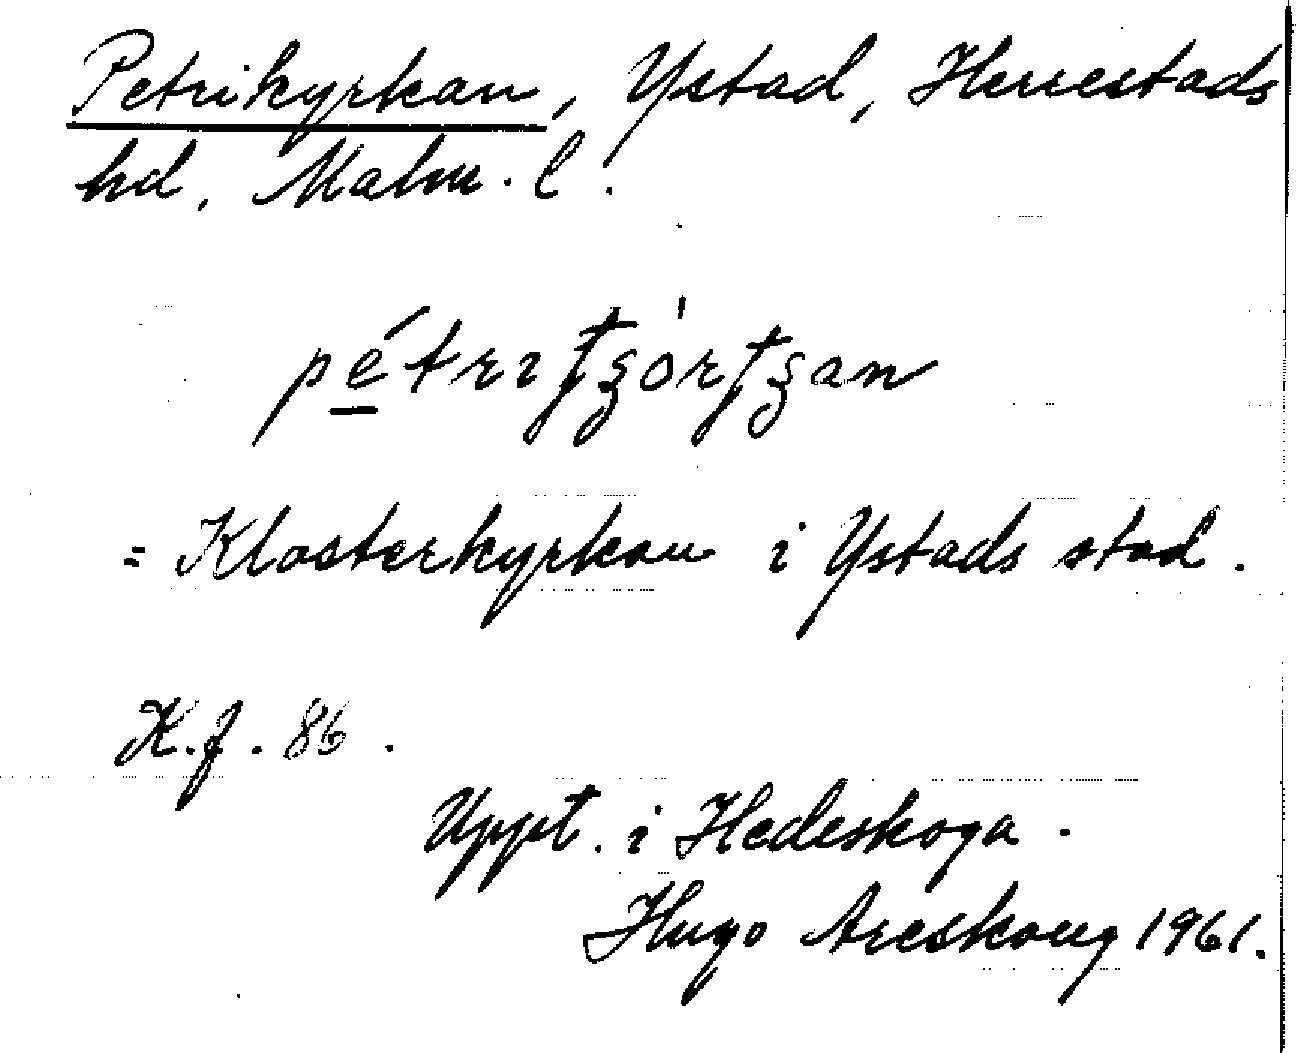 Petrikyrkan, Ystad, Herrestads
hd, Malm. l.
= Klosterkyrkan i Ystads stad.
K.f. 86.
Uppt. i Hedeskoga.
Hugo Areskoug 1961.